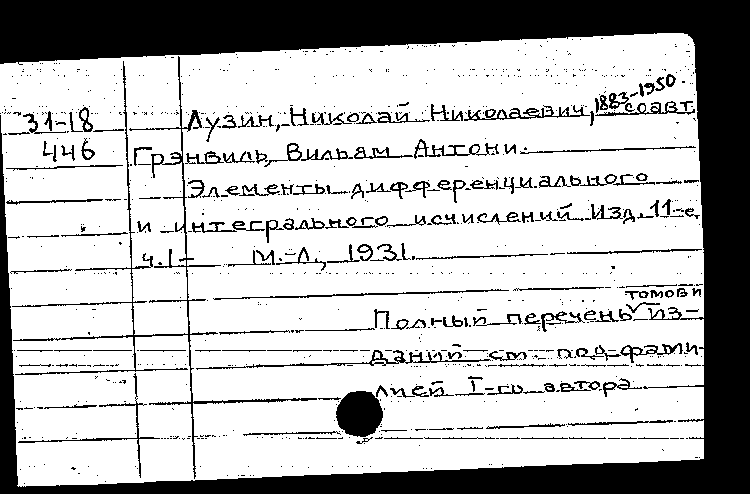 31-18 Лузин, Николай Николаевич, 1883-1950. соавт.
446 Грэнвиль, Вильям Антони.
Элементы дифференциального
и интегрального исчислений Изд. 11-е
ч. 1- М.-Л., 1931.
Полный перечень томов и из-
даний см. под фами-
лией I-го автора.